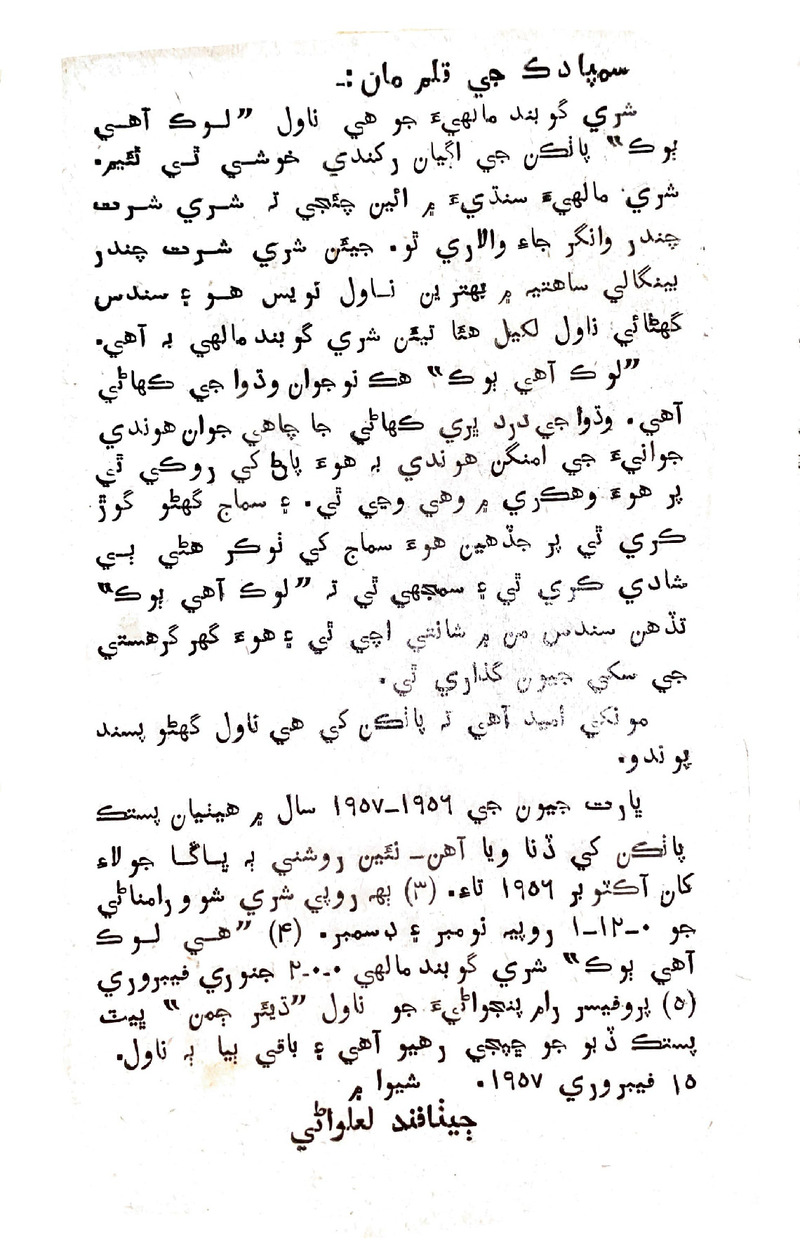 سمپادڪ جي قلم مان :ـ
شري گوبند مالهيءَ جو هي ناول ”لوڪ آهي
ٻوڪ“ پاٺڪن جي اڳيان رکندي خوشي ٿي ٿئيم.
شري مالهيءَ سنڌيءَ ۾ ائين چئجي تہ شري شرت
چندر وانگر جاءِ والاري ٿو. جيئن شري شرت چندر
بينگالي ساهتيہ ۾ بهترين ناول نويس هو ۽ سندس
گهڻائي ناول لکيل هئا تيئن شري گوبند مالهي بہ آهي.
”لوڪ آهي ٻوڪ“ هڪ نوجوان وڌوا جي ڪهاڻي
آهي. وڌوا جي درد ڀري ڪهاڻي جا چاهي جوان هوندي
جوانيءَ جي امنگن هوندي بہ هوءَ پاڻ کي روڪي ٿي
پر هوءَ وهڪري ۾ وهي وڃي ٿي. ۽ سماج گهڻو گوڙ
ڪري ٿي پر جڏهين هوءَ سماج کي ٺوڪر هڻي ٻي
شادي ڪري ٿي ۽ سمجهي ٿي تہ ”لوڪ آهي ٻوڪ“
تڏهن سندس من ۾ شانتي اچي ٿي ۽ هوءَ گهر گرهستي
جي سکي جيون گذاري ٿي.
مونکي اميد آهي تہ پاٺڪن کي هي ناول گهڻو پسند
پوندو.
ڀارت جيون جي ١٩٥٦ـ١٩٥٧ سال ۾ هيٺيان پستڪ
پاٺڪن کي ڏنا ويا آهن ـ نئين روشني بہ ڀاڱا جولاءِ
کان آڪٽوبر ١٩٥٦ تاءِ. (٣) ٻهہ روپي شري شوورامناڻي
جو ٠ـ١٢ـ١ روپيہ نومبر ۽ ڊسمبر. (۴) ”هي لوڪ
آهي ٻوڪ“ شري گوبند مالهي ٠ـ٠ـ٢ جنوري فيبروري
(٥) پروفيسر رام پنجواڻيءَ جو ناول ”ڌيئر ڄمن“ ڀيٽ
پستڪ ڏٻو جو ڇپجي رهيو آهي ۽ باقي ٻيا بہ ناول.
١٥ فيبروري ١٩٥٧. شيوا ۾
جيٺانند لعلواڻي